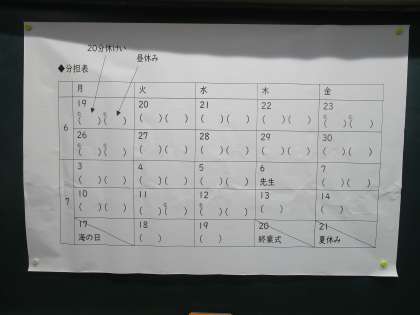 20分休けい
昼休み
◆分担表
月 火 水 木 金
19 20 21 22 23
( )( ) ( )( ) ( )( ) ( )( ) ( )( )
6
26 27 28 29 30
( )( ) ( )( ) ( )( ) ( )( ) ( )( )
3 4 5 6 7
( )( ) ( )( ) ( )( ) 先生 ( )( )
7
10 11 12 13 14
( )( ) ( )( ) ( )( ) ( ) ( )
17 18 19 20 21
海の日 ( ) ( ) 終業式 夏休み